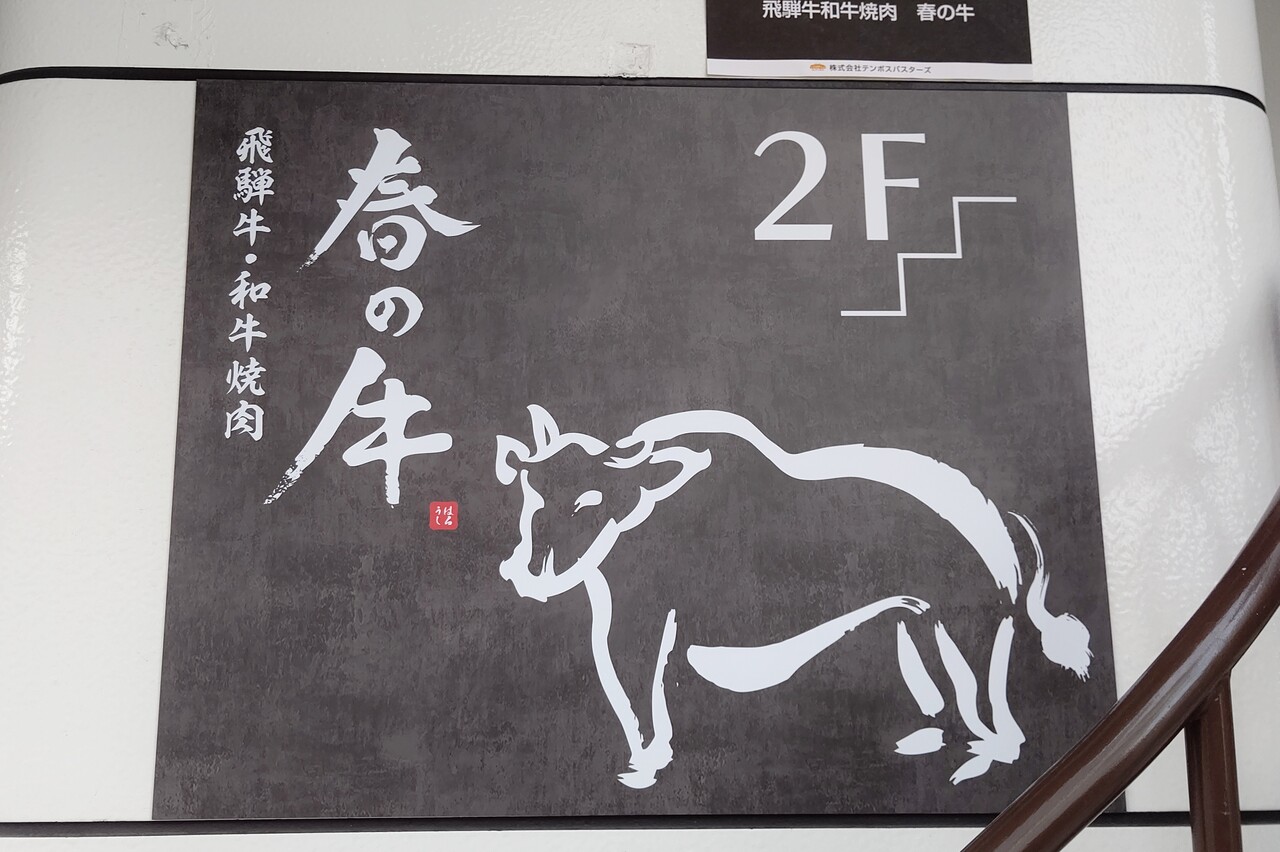 飛騨牛和牛焼肉 春の牛
株式会社テンポスバスターズ
2F
春の牛
飛騨牛・和牛焼肉
はる
うし